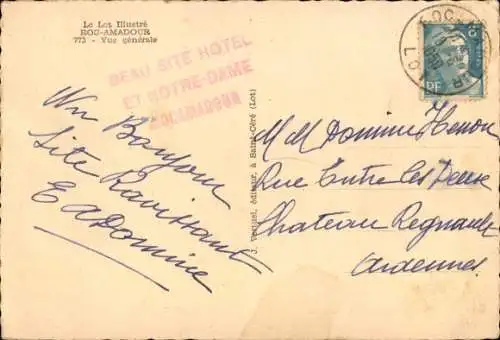 Le Lot Illustré
ROC-AMADOUR
773 - Vue générale
BEAU SITE HOTEL
ET NOTRE-DAME
ROCAMADOUR
Un Bonjour
Site Ravissant
J. Vertuel, éditeur, à Saint-Céré (Lot)
LOT
RF
M M Dominé Henon
Rue Entre les Deux
Chateau Regnault
Ardennes